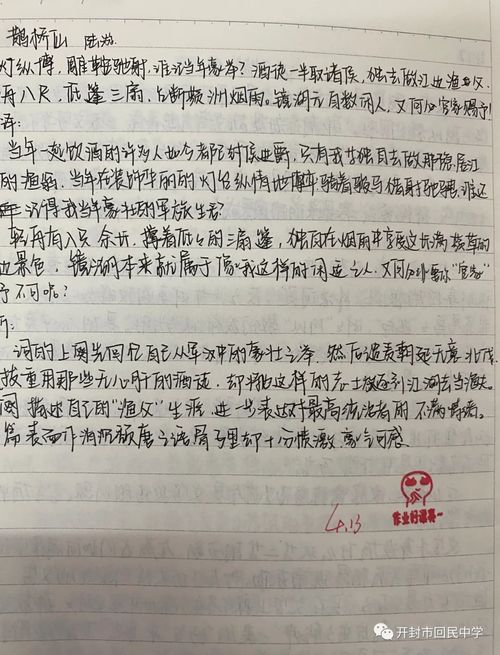 鹊桥仙 陆游
灯纵博，雕鞍驰射，谁记当年豪举？酒徒一半取诸侯，独去做江边渔父。
舟八尺，低篷三扇，占断蘋洲烟雨。镜湖元自数闲人，又何必官家赐予！
译：
当年一起饮酒的许多人如今都封侯，只有我却独自去做那隐居江
的渔翁。当年在装饰华丽的灯台纵情地博弈骑着骏马猎射驰骋，谁还
记得我当年豪壮的军旅生活？
轻舟有八尺余长，撑着低低的三扇篷，独自在烟雨中享受这长满蘋草的
边景色。镜湖本来就属于像我这样的闲适之人，又何必非要你“官家”
予不可呢？
析：
词的上阕先回忆自己从军汉中的豪壮之举，然后谴责朝廷无意北伐
拔重用那些无心肝的酒徒，却把这样的志士放还到江湖去当渔夫。
阕描述自己的“渔父”生涯，进一步表达对最高统治者的不满情绪。
篇表面作消沉颓唐之语，骨子里却十分愤激，豪气可感
4.13
作业好漂亮~
开封市回民中学